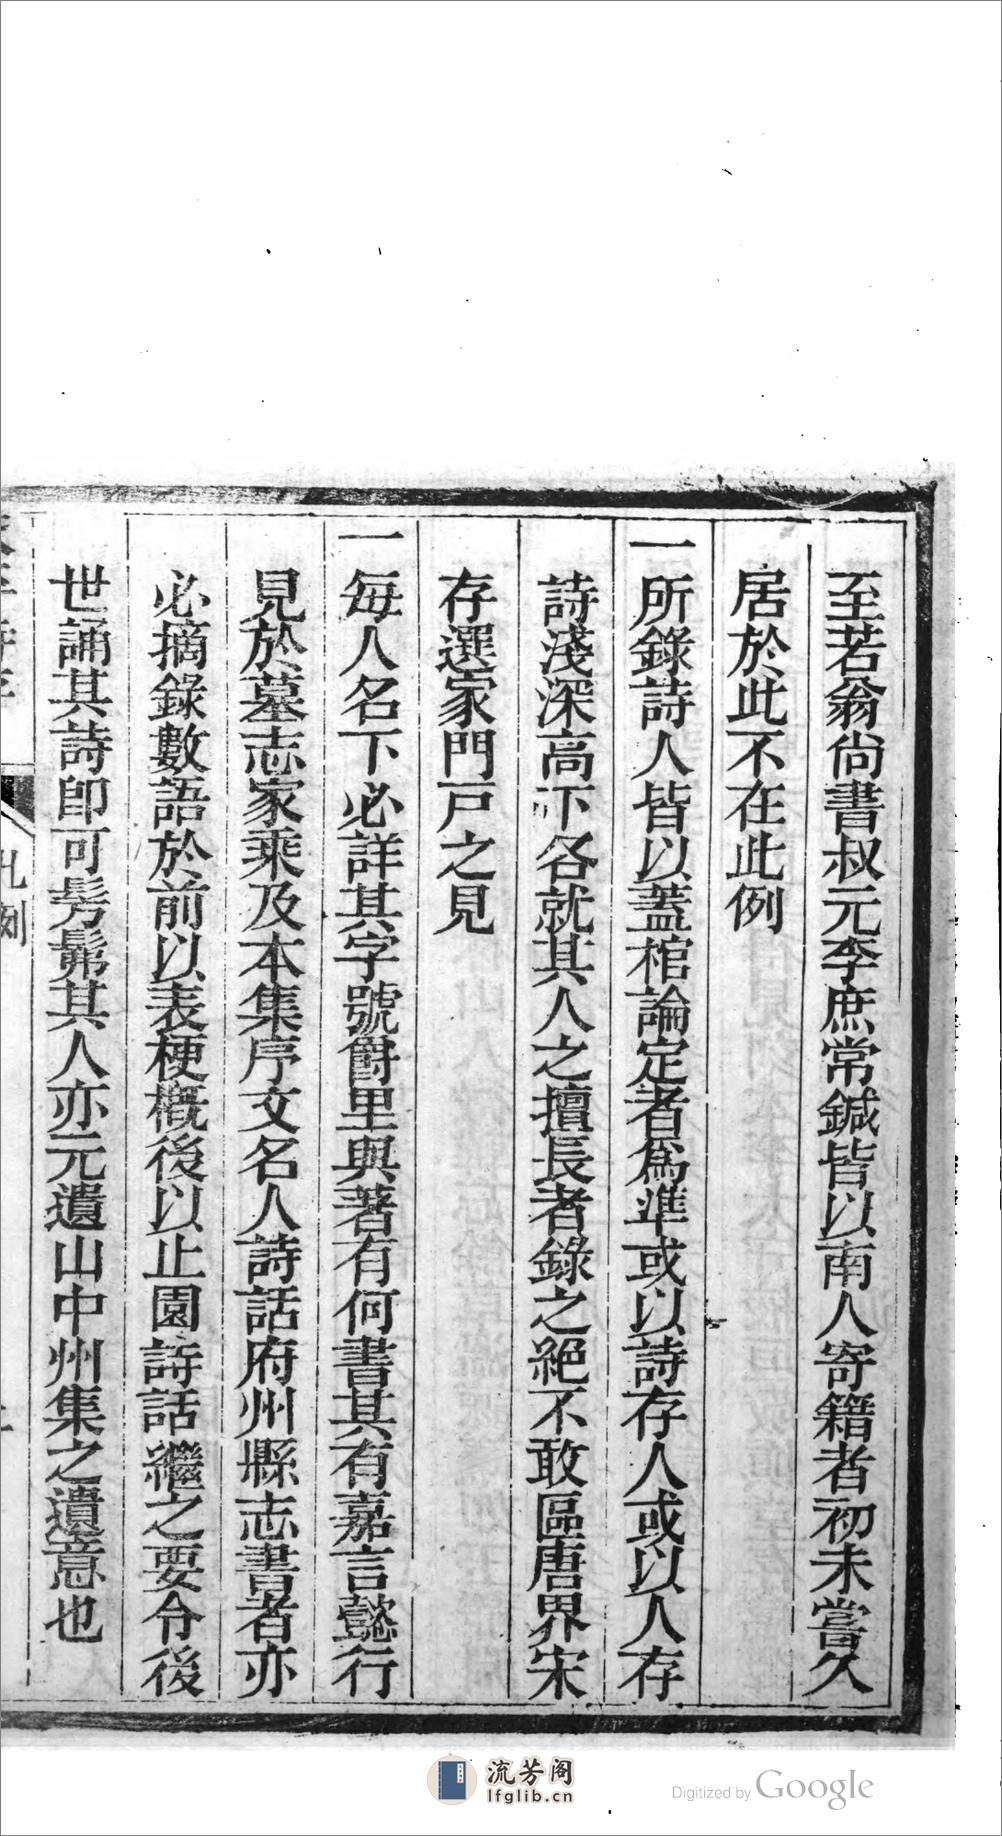 至若翁尚書叔元李庶常鍼皆以南人寄籍者初未嘗久
居於此不在此例
一所錄詩人皆以蓋棺論定者爲準或以詩存人或以人存
詩淺深高下各就其人之擅長者錄之絕不敢區唐界宋
存選家門戸之見
一每人名下必詳其字號爵里與著有何書其有嘉言懿行
見於墓志家乘及本集序文名人詩話府州縣志書者亦
必摘錄數語於前以表梗槪後以止園詩話繼之要令後
世誦其詩卽可髣髴其人亦元遺山中州集之遺意也
凡例
流芳阁
lfglib.cn
Digitized by Google